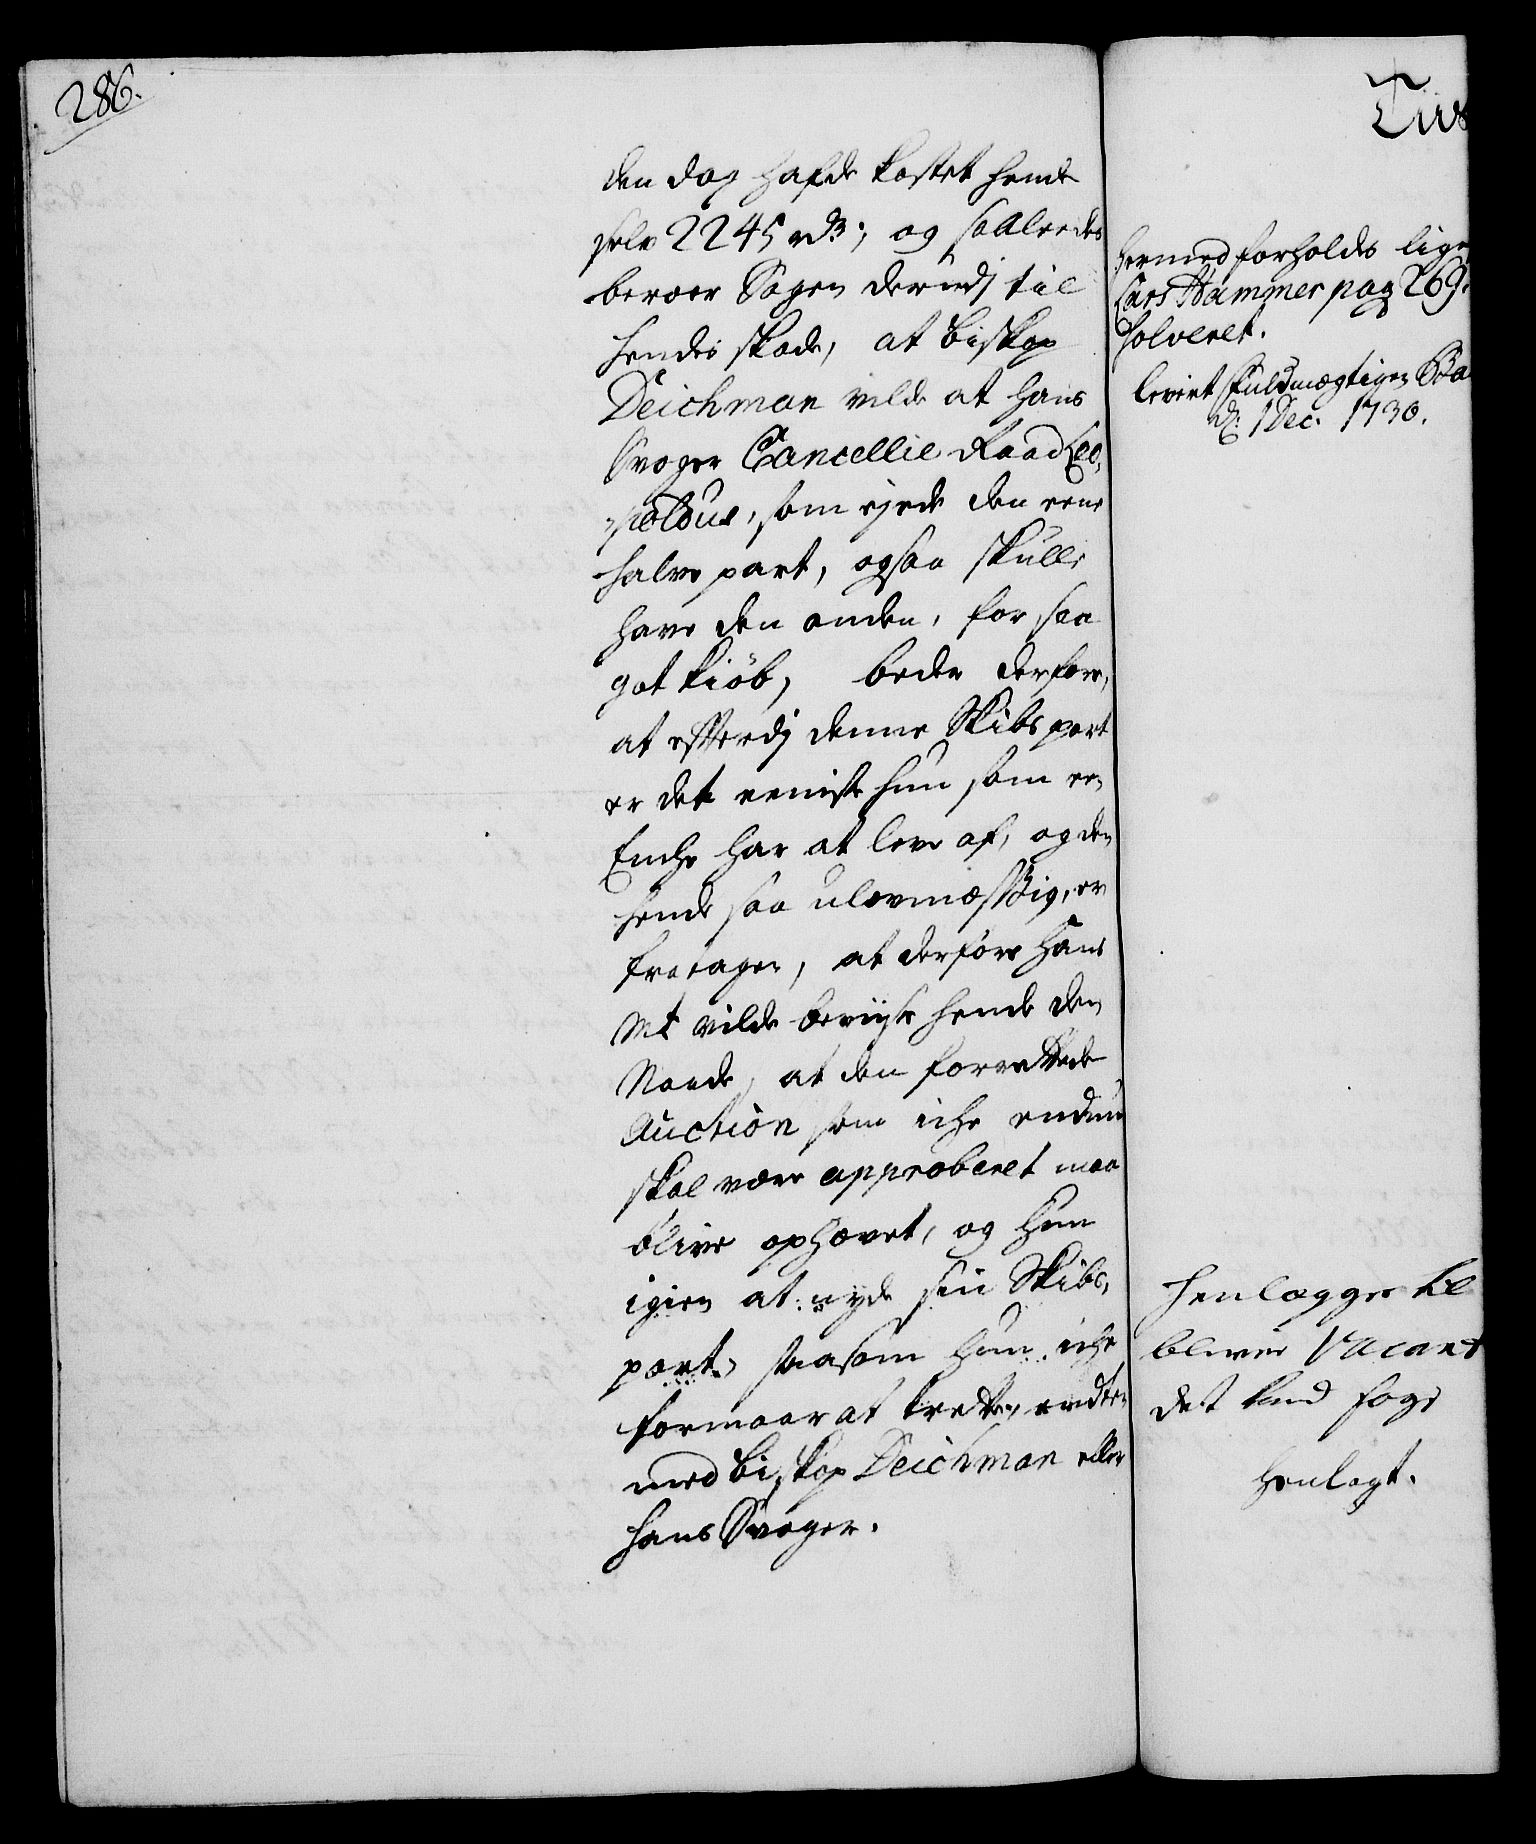 286.
den dog hafde kostet hende
selv 2245 rd; og saaleedes
beroer Sagen derudj til
hendes skade, at biskop
Deichman vilde at hans
Svoger Cancellie Raad Leo,
poldus, som ejede den eene
halve part, ogsaa skulle
have den anden, for saa
got kiöb, beder derfore,
at efterdj denne Skibs part
er det eeniste hun som een
Enche har at leve af, og den
hende saa ulovmæssig, er
fratagen, at derfore Hans
Mt vilde beviise hende den
Naade, at den forrettede
Auction som iche endnu
skal være approberet maa
blive ophævet, og hun
igien at nyde sin Skibs,
part, saasom hun iche
formaar at trette, endten
med biskop Deichman eller
hans Svoger.
Tius
hermed forholdes lige
Lars Hammer pag 269.
solveret.
levert fuldmægtigen
d: 1 Dec. 1730.
henlægges til
bliver Vacant
det land fogd
henlagt.